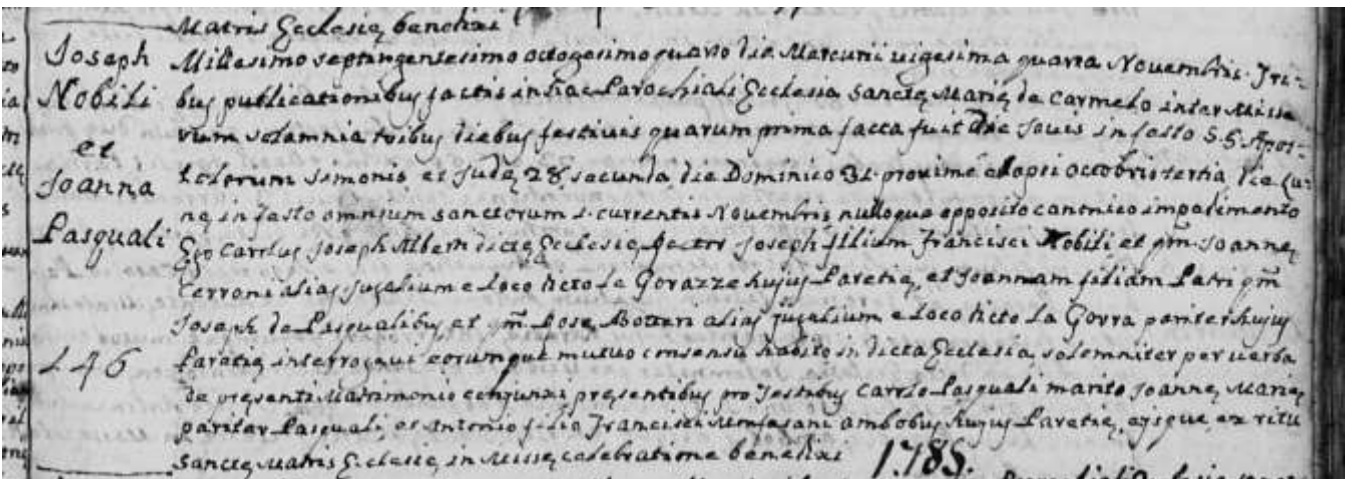 Matris Ecclesię benedixi
Joseph
Nobili
et
Joanna
Pasquali
146
Millesimo septingentesimo octogesimo quarto die Mercurii vigesima quarta Novembris Tri-
bus publicationibus factis in hac Parochiali Ecclesia Sanctę Marię de Carmelo inter Missa
rum solemnia tribus diebus festivis quarum prima facta fuit die Jovis in festo S.S. Apos-
tolorum Simonis et Judę 28 secunda die Dominico 31 proxime elapsi Octobris tertia die Lu-
nę in festo omnium Sanctorum 1. currentis Novembris nulloque opposito canonico impedimento
Ego Carolus Joseph Alberti dictę Ecclesię Joseph filium Francisci Nobili et qm̃ Joannę
Cerroni alias jugalium e loco dicto Le Gorazze hujus Paretię, et Joannam filiam Petri qm̃
Joseph de Pasqualibus et qm̃ Rosę Botteri alias jugalium e loco dicto La Govra pariter hujus
Paretię interrogavi eorumque mutuo consensu habito in dicta Ecclesia solemniter per verba
de presenti Matrimonio conjunxi pręsentibus pro Testibus Carolo Pasquali marito Joannę Marię
pariter Pasquali et Antonio filio Francisci ambobus hujus Paretię, ejsque ex ritu
Sanctę Matris Ecclesię in Missę celebratione benedixi
1785.